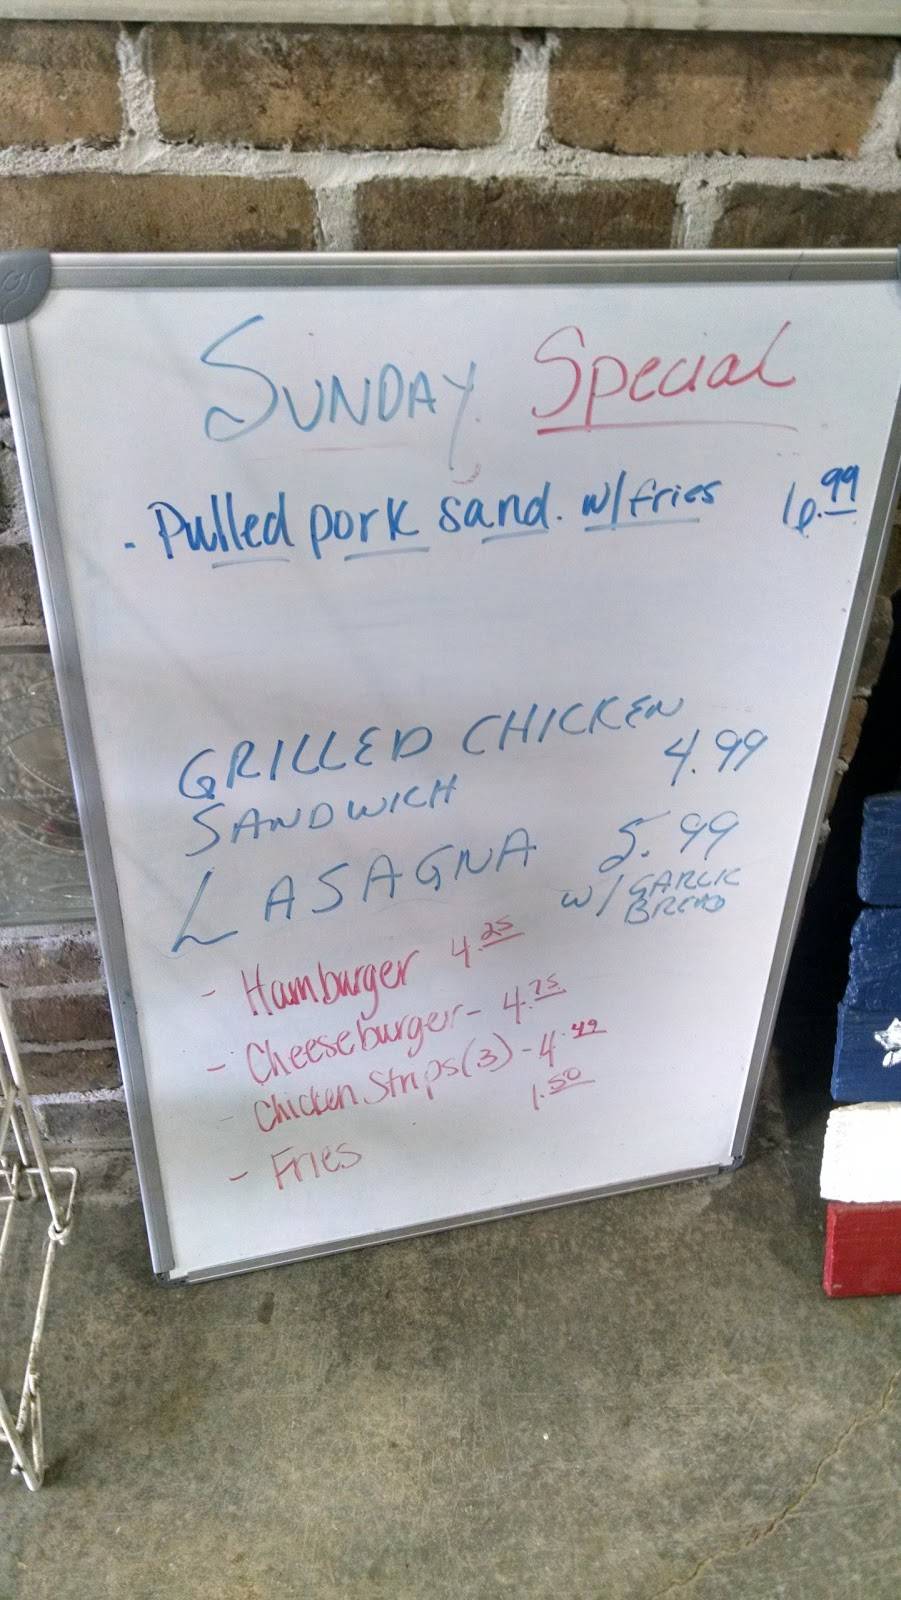 SUNDAY Special
- Pulled pork sand. w/fries 6.99
GRILLED CHICKEN
SANDWICH 4.99
LASAGNA 5.99
w/ GARLIC
BREAD
- Hamburger 4.25
- Cheeseburger - 4.75
- Chicken Strips (3) - 4.49
- Fries 1.50